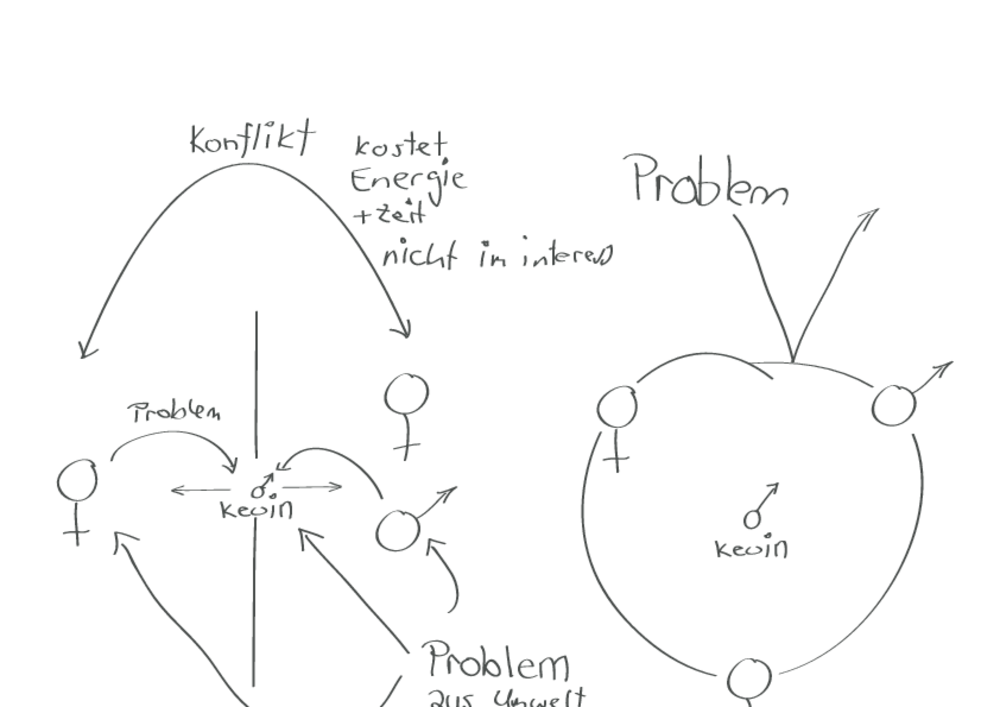 Konflikt
kostet
Energie
+ Zeit
nicht im interess
Problem
Problem
Kevin
Kevin
Problem
aus Umwelt